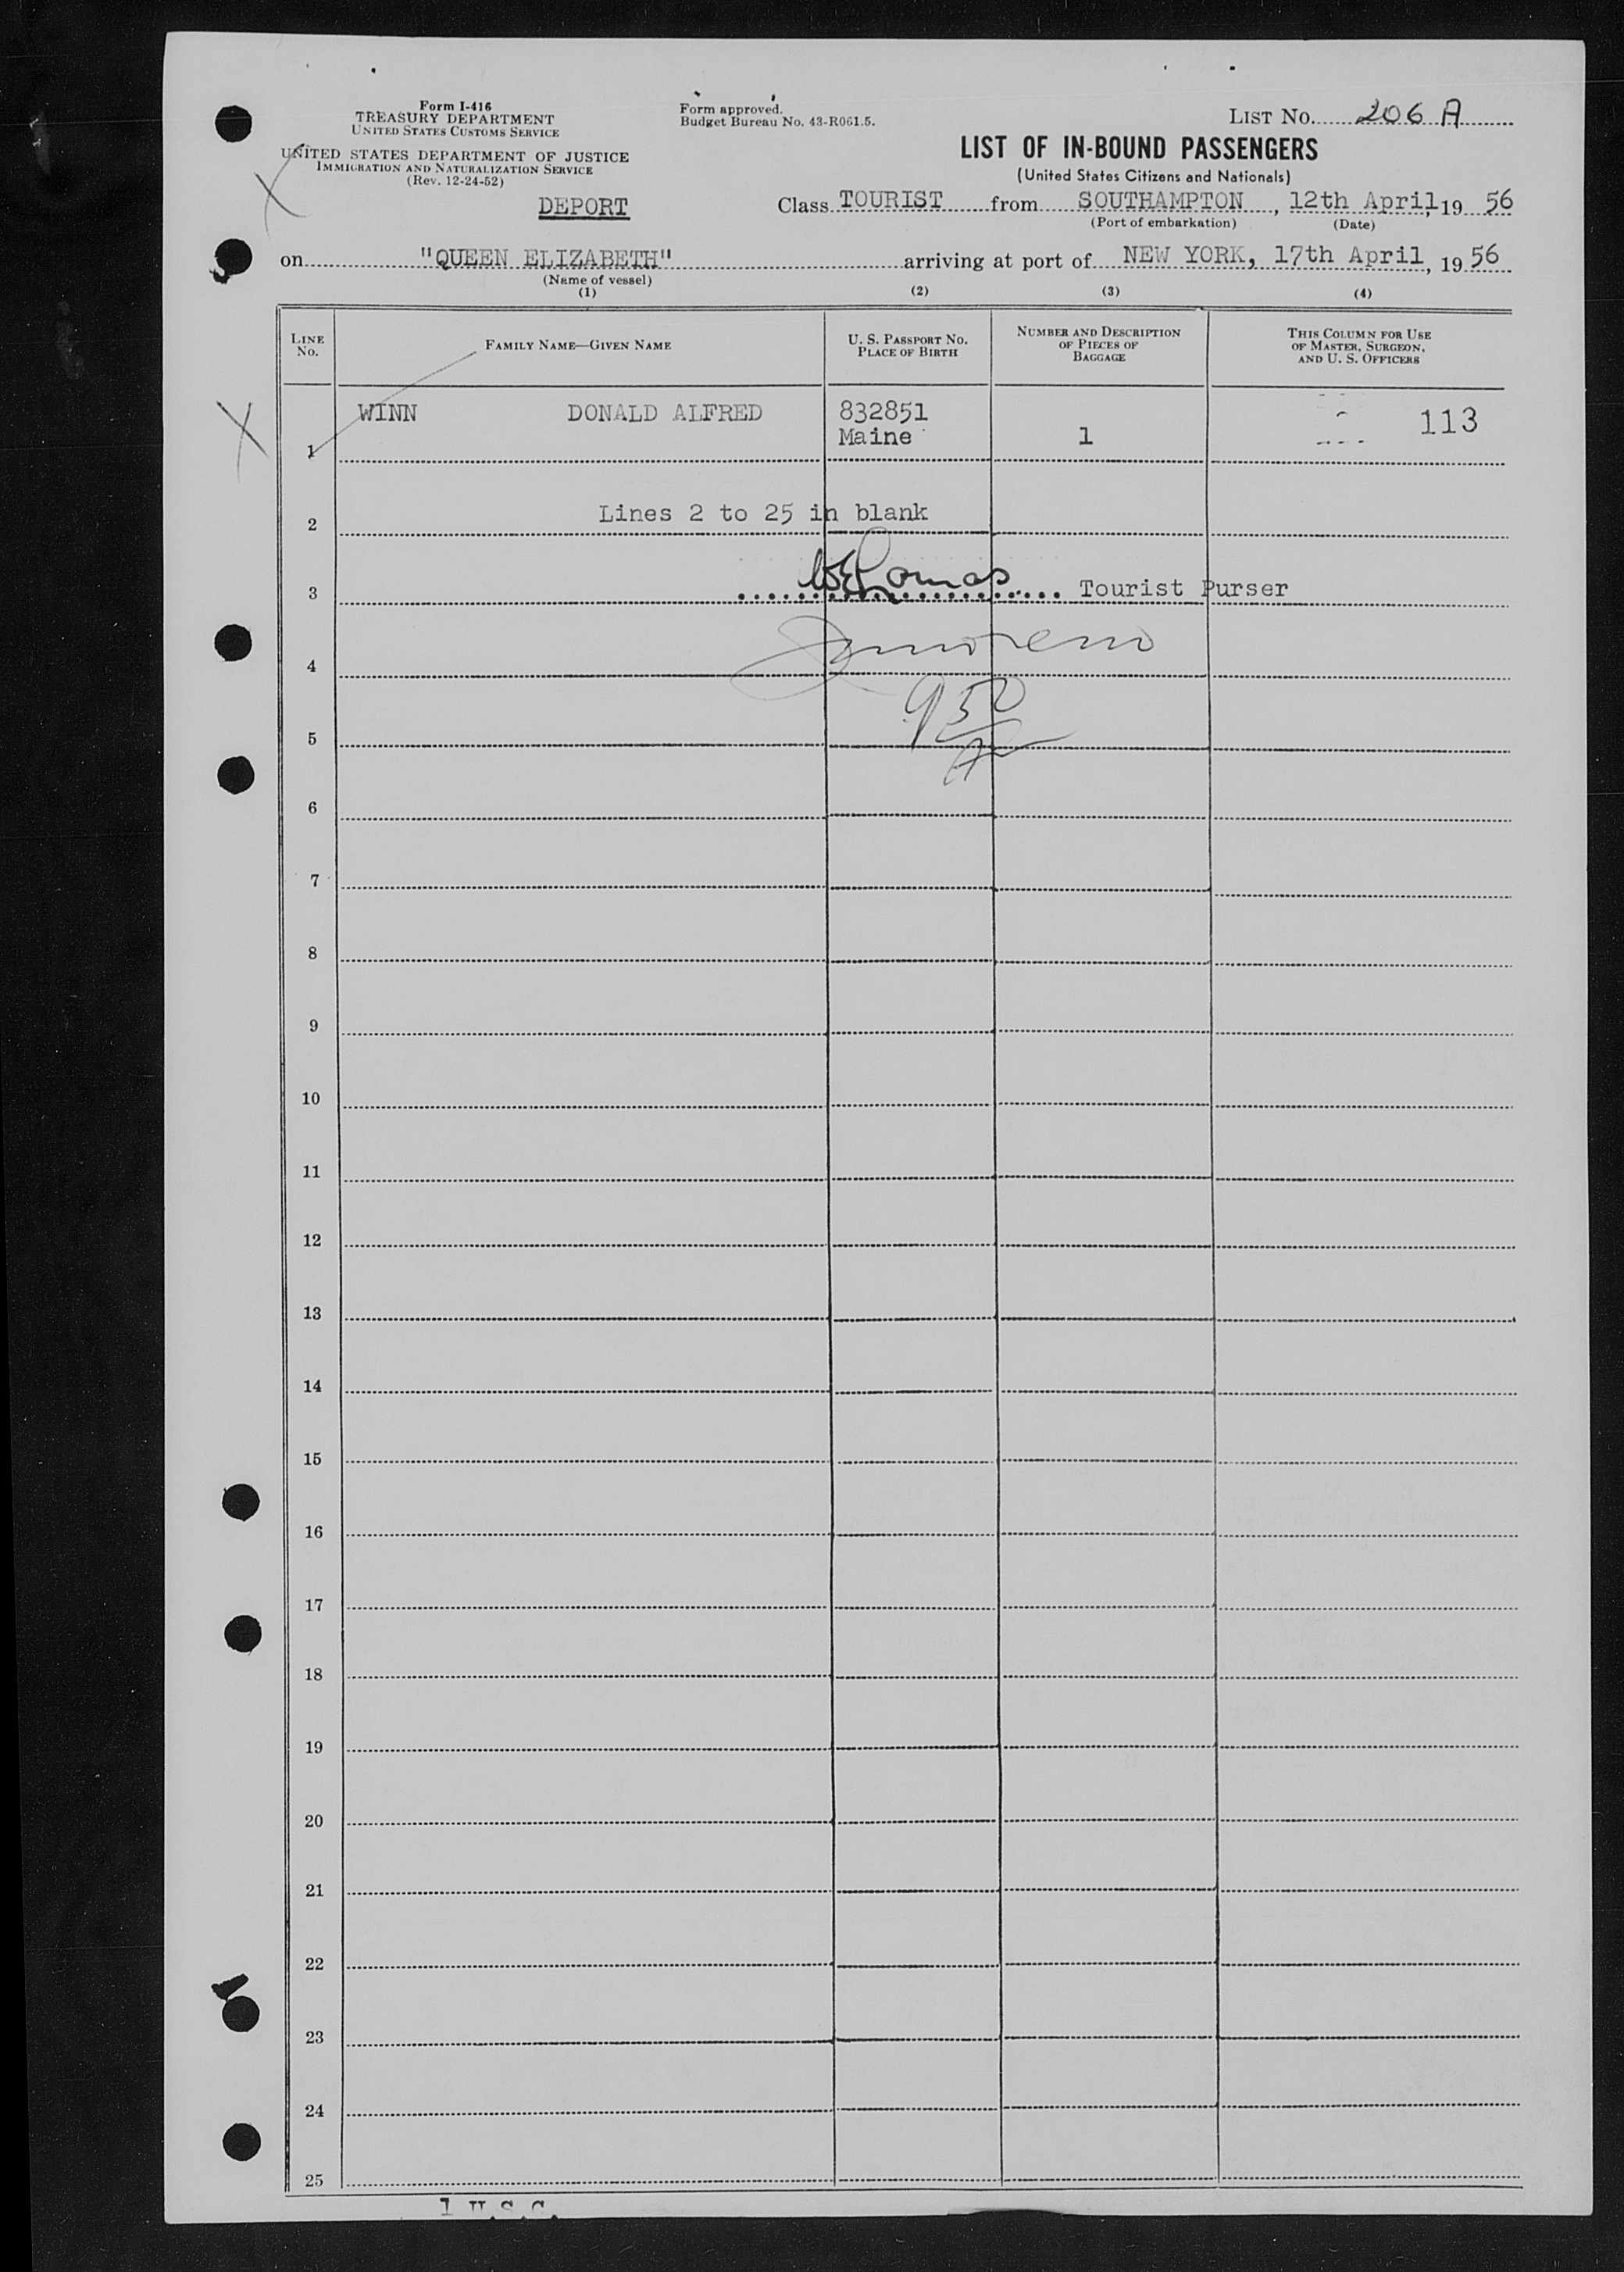 Form I-416
TREASURY DEPARTMENT
UNITED STATES CUSTOMS SERVICE
UNITED STATES DEPARTMENT OF JUSTICE
IMMIGRATION AND NATURALIZATION SERVICE
(Rev. 12-24-52)
Form approved.
Budget Bureau No. 43-R061.5.
LIST NO. 206 A
LIST OF IN-BOUND PASSENGERS
(United States Citizens and Nationals)
DEPORT
Class TOURIST from SOUTHAMPTON, 12th April, 19 56
(Port of embarkation) (Date)
on "QUEEN ELIZABETH" arriving at port of NEW YORK, 17th April, 19 56
(Name of vessel)
(1) (2) (3) (4)
LINE NO.
FAMILY NAME—GIVEN NAME
U. S. PASSPORT NO.
PLACE OF BIRTH
NUMBER AND DESCRIPTION
OF PIECES OF
BAGGAGE
THIS COLUMN FOR USE
OF MASTER, SURGEON,
AND U. S. OFFICERS
WINN DONALD ALFRED 832851 113
1 Maine 1
2 Lines 2 to 25 in blank
3 Tourist Purser
4
950
5
6
7
8
9
10
11
12
13
14
15
16
17
18
19
20
21
22
23
24
25
1 U.S.C.